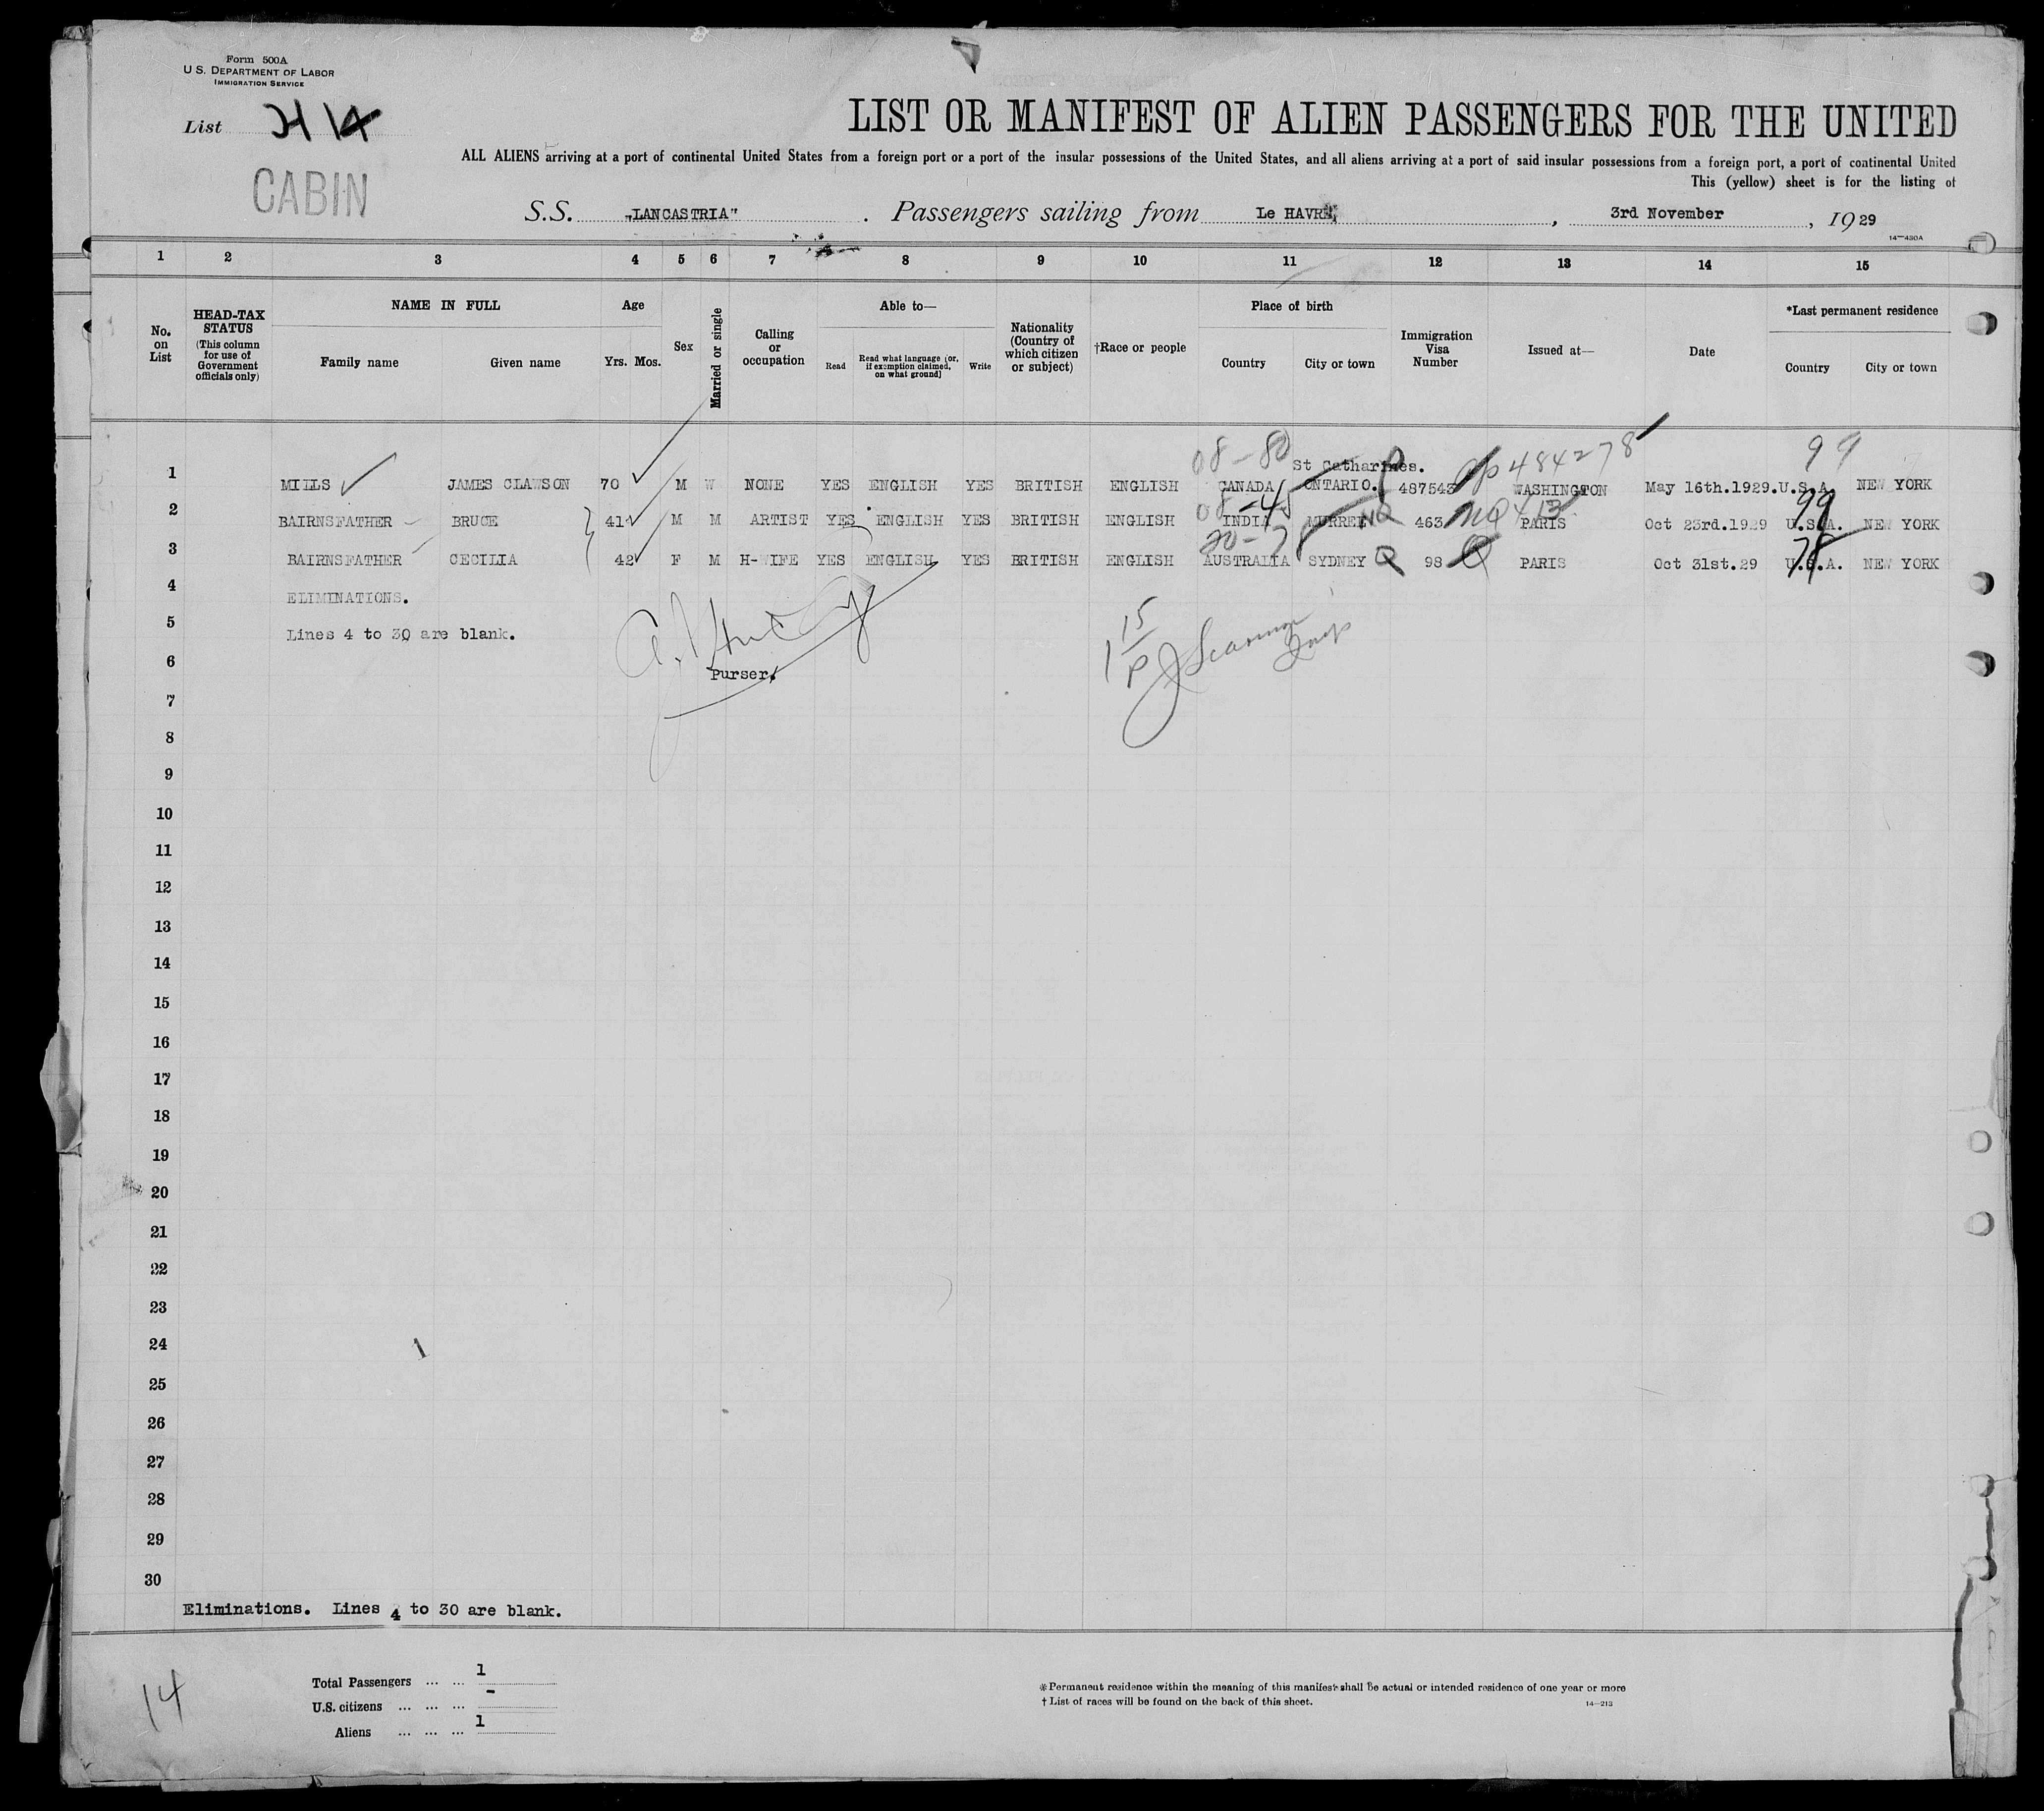 Form 500A
U.S. DEPARTMENT OF LABOR
IMMIGRATION SERVICE
List
CABIN
LIST OR MANIFEST OF ALIEN PASSENGERS FOR THE UNITED
ALL ALIENS arriving at a port of continental United States from a foreign port or a port of the insular possessions of the United States, and all aliens arriving at a port of said insular possessions from a foreign port, a port of continental United
This (yellow) sheet is for the listing of
S.S. "LANCASTRIA" . Passengers sailing from Le HAVRE, , 3rd November , 1929
14—430A
1 2 3 4 5 6 7 8 9 10 11 12 13 14 15
No. on List
HEAD-TAX STATUS (This column for use of Government officials only)
NAME IN FULL
Family name Given name
Age
Yrs. Mos.
Sex
Married or single
Calling or occupation
Able to—
Read
Read what language [or, if exemption claimed, on what ground]
Write
Nationality (Country of which citizen or subject)
†Race or people
Place of birth
Country City or town
Immigration Visa Number
Issued at—
Date
*Last permanent residence
Country City or town
08-80 484278 99
St Catharines.
1 MILLS JAMES CLAWSON 70 M W NONE YES ENGLISH YES BRITISH ENGLISH CANADA ONTARIO. 487543 WASHINGTON May 16th.1929. U.S.A. NEW YORK
08-45 NQ 413 99
2 BAIRNSFATHER BRUCE 41 M M ARTIST YES ENGLISH YES BRITISH ENGLISH INDIA MURREE 463 PARIS Oct 23rd.1929 U.S.A. NEW YORK
20-78 78
3 BAIRNSFATHER CECILIA 42 F M H-WIFE YES ENGLISH YES BRITISH ENGLISH AUSTRALIA SYDNEY Q 98 Q PARIS Oct 31st.29 U.S.A. NEW YORK
4 ELIMINATIONS.
5 Lines 4 to 30 are blank.
6 Purser.
7
8
9
10
11
12
13
14
15
16
17
18
19
20
21
22
23
24
25
26
27
28
29
30
Eliminations. Lines 4 to 30 are blank.
14
Total Passengers ... ... 1
U.S. citizens ... ... ... -
Aliens ... ... ... 1
* Permanent residence within the meaning of this manifest shall be actual or intended residence of one year or more
† List of races will be found on the back of this sheet.
14—213